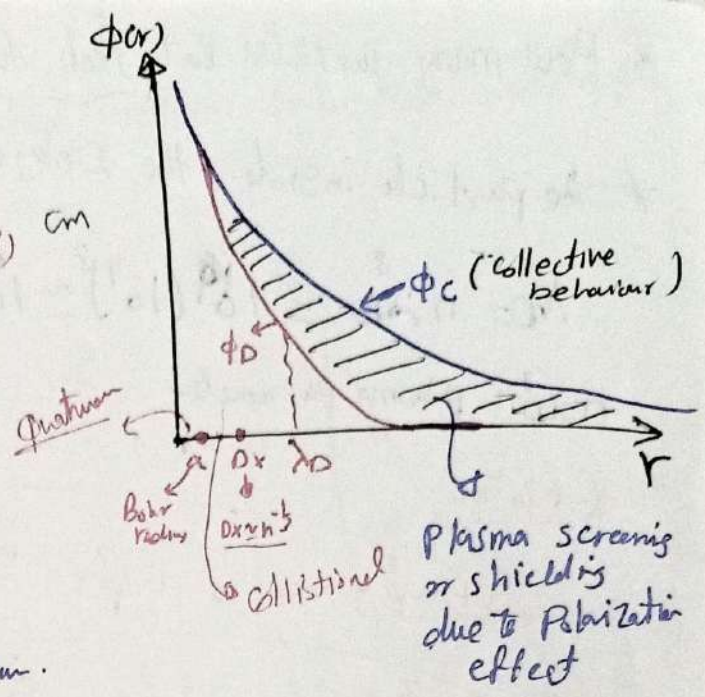 ϕ(r)
cm
ϕc ("collective
behaviour)
ϕD
a Dx λD
r
Bohr
radius
collistional
Plasma screenig
or shieldig
due to Polarization
effect